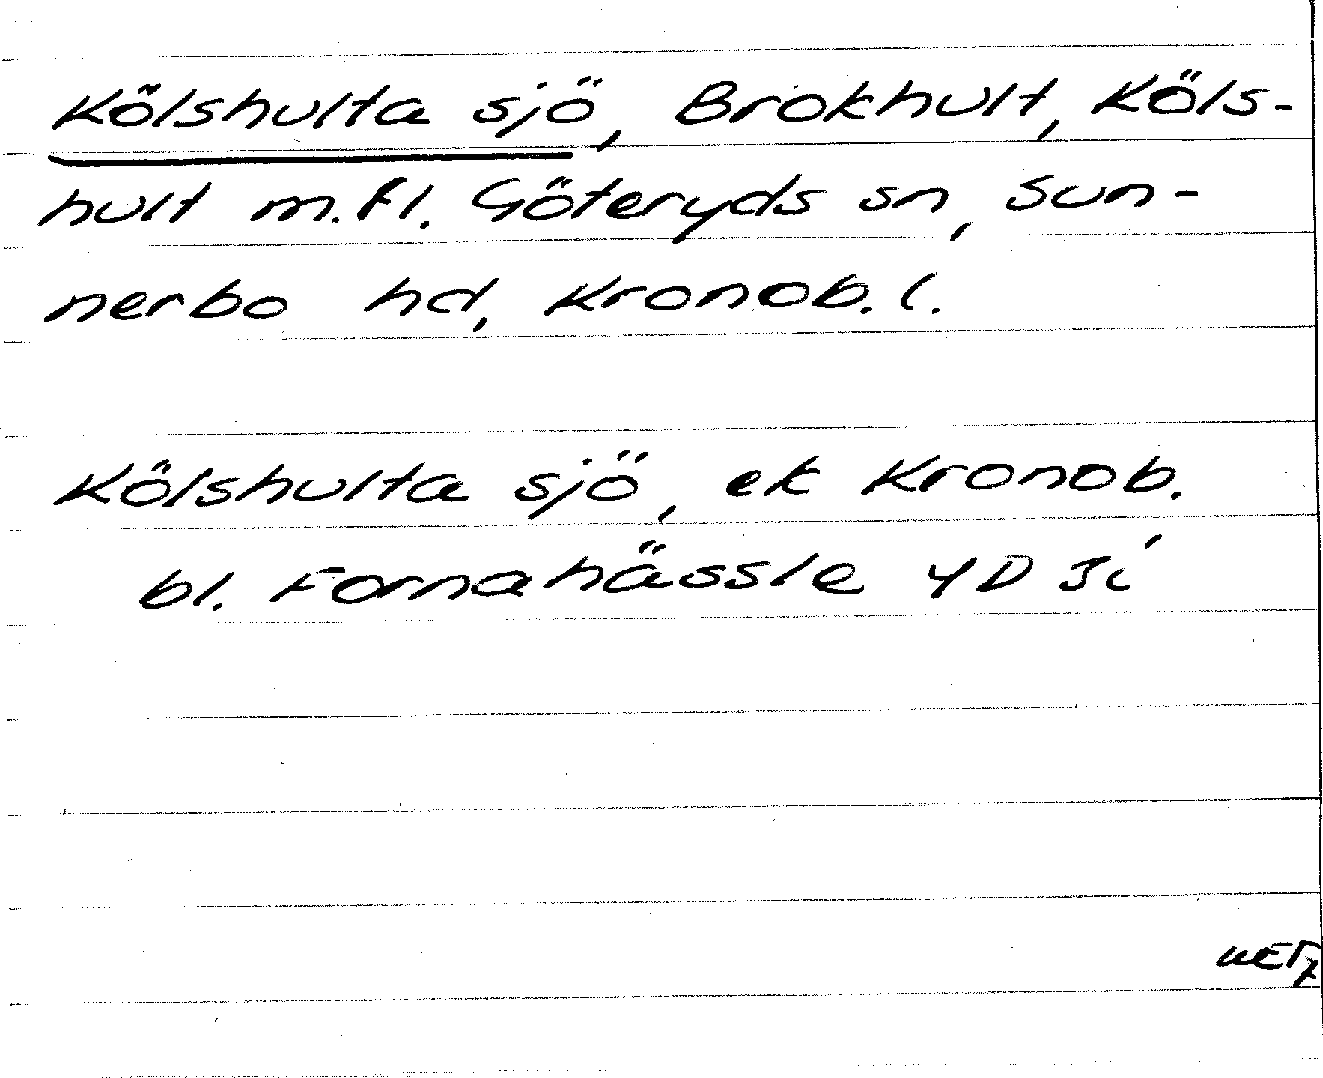 Kölshulta sjö, Brokhult, Köls-
hult m.fl. Göteryds sn, Sun-
nerbo hd, Kronob. l.
Kölshulta sjö, ek Kronob.
bl. Fornahässle 4D 3i